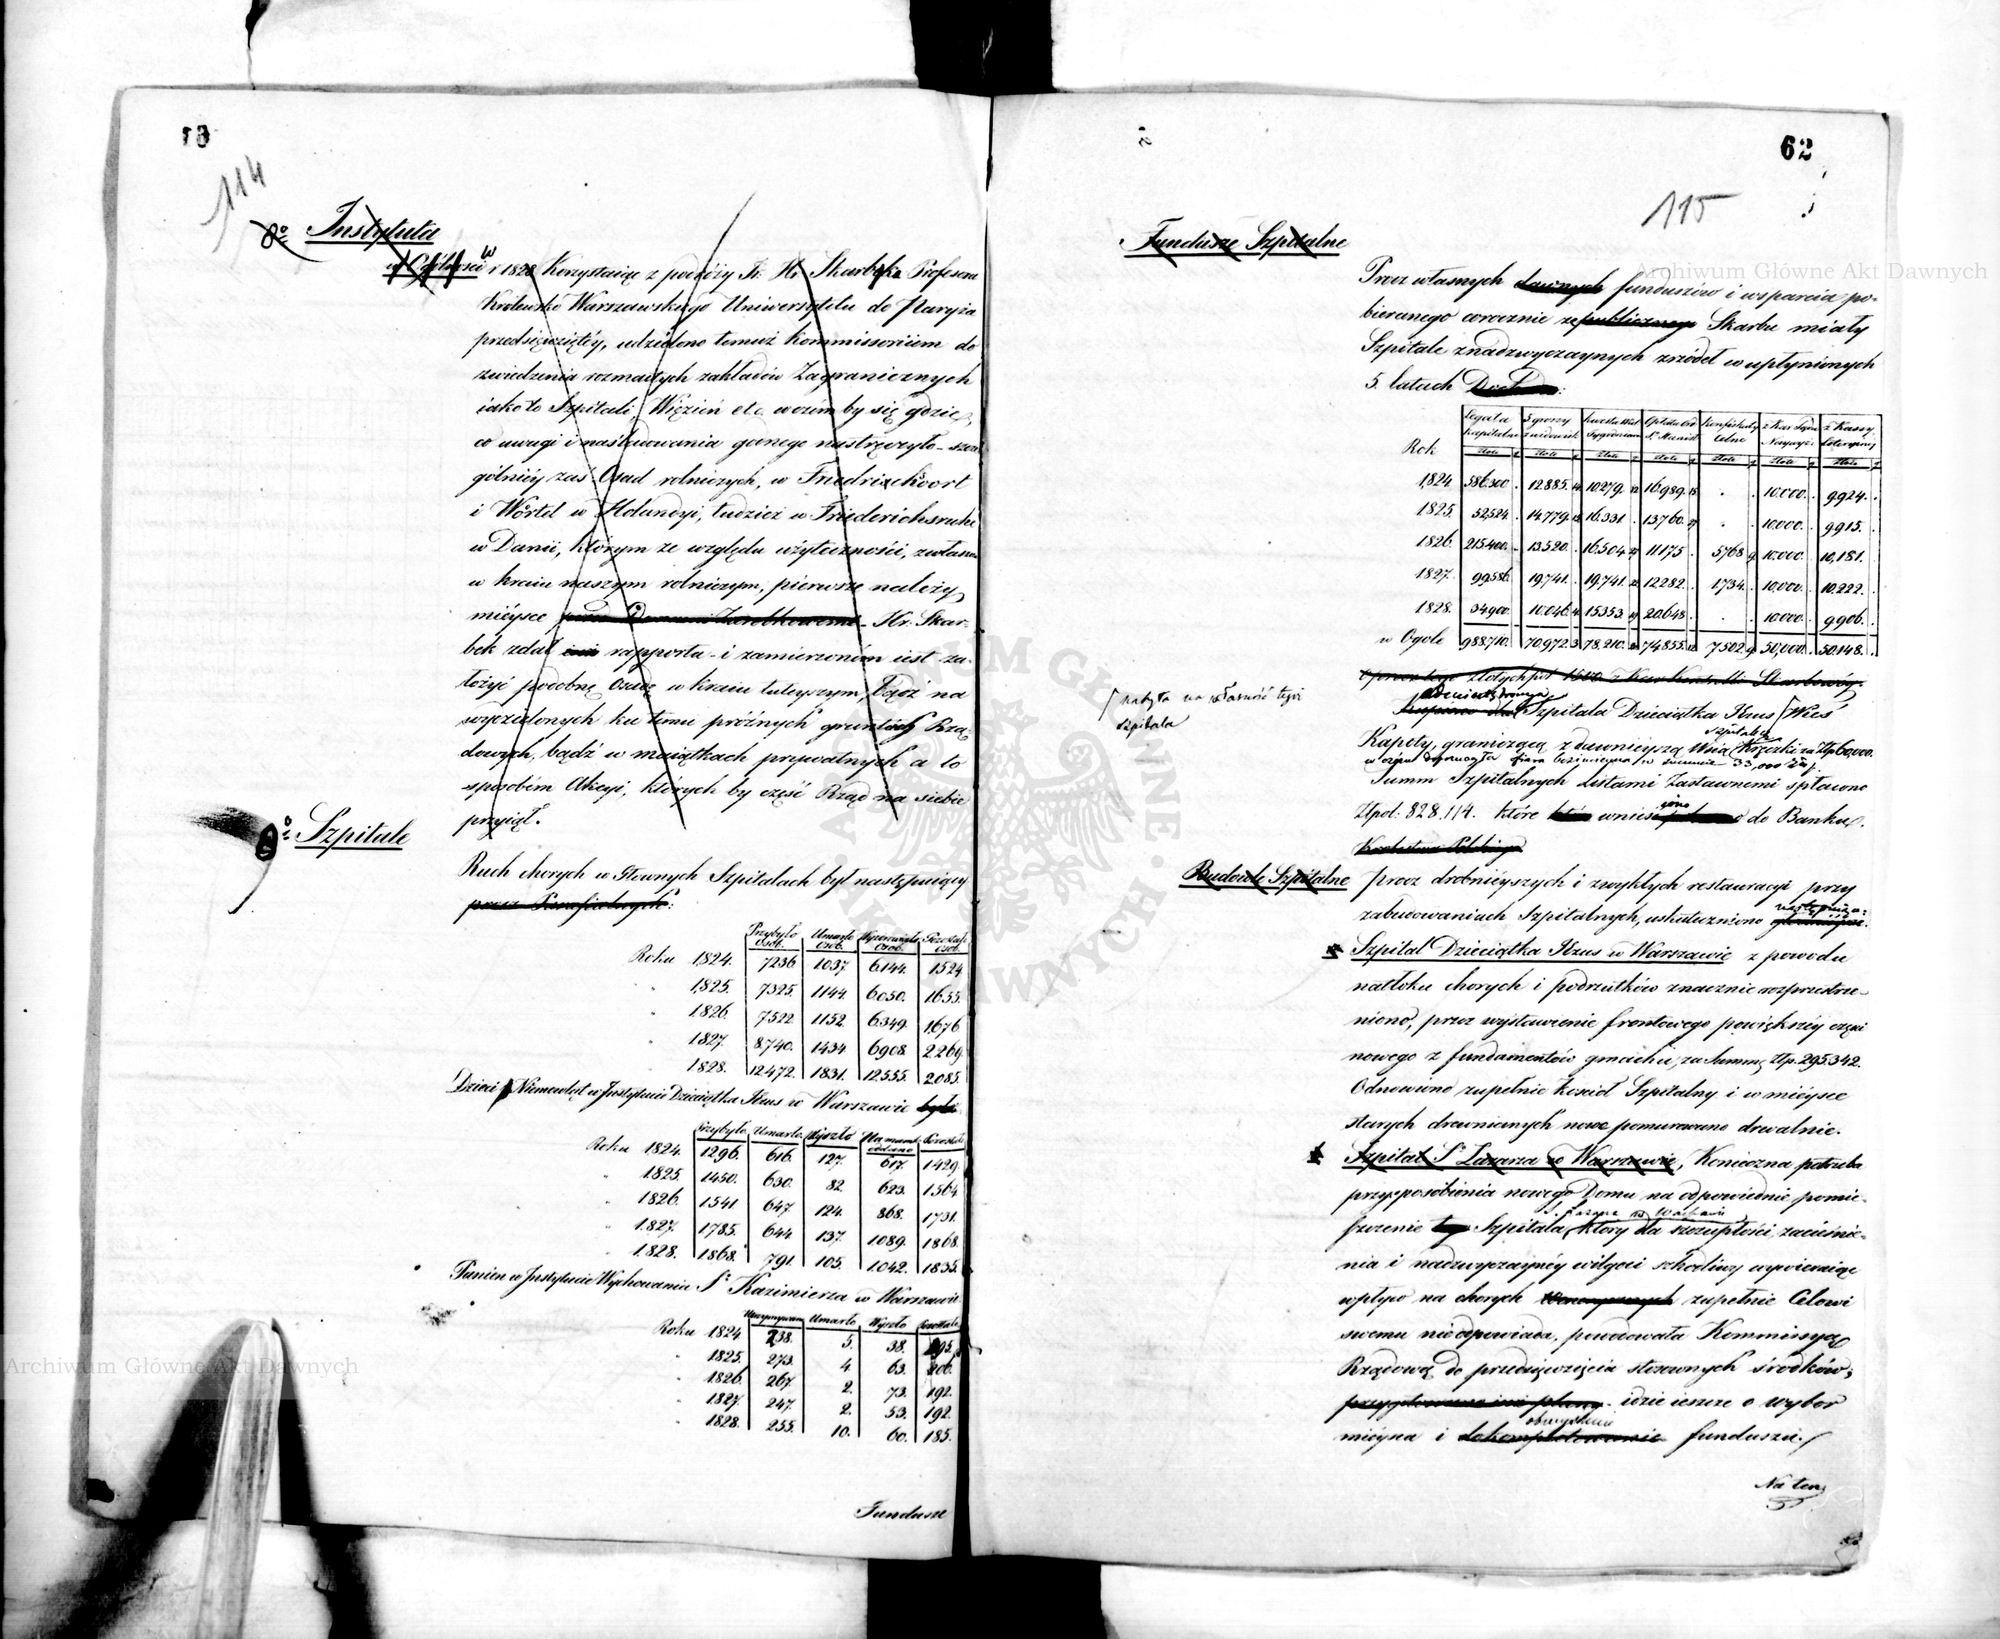 61
114
8º Instytuta
w Ogólności w r 1828 Korzystaiąc z podróży Fr. Hr. Skarbka Profesora
Królewsko Warszawskiego Uniwersytetu do Paryża
przedsięwziętéy, udzielono temuż kommissorium do
zwiedzenia rozmaitych zakładów Zagranicznych
iako to Szpitali, Więzień etc. w czém by się gdzie
co uwagi i naśladowania godnego nastręczyło - szcze
gólniéy zaś Osad rolniczych, w Friedrickoort
i Wortel w Holandyi, tudzież w Friederichsruhe
w Danii, którym ze względu użyteczności, zwłasza
w kraiu naszym rolniczym, pierwsze należy
mieysce Hr. Skar-
bek zdał rapporta - i zamierzoném iest za-
łożyć podobną Osadę w kraiu tuteyszym, bądź na
wydzielonych ku temu próżnych gruntach Rzą-
dowych, bądź w maiątkach prywatnych a to
sposobém Akcyi, których by część Rząd na siebie
przyiął.
9º Szpitale
Ruch chorych w Głównych Szpitalach był następuiący
Przybyło osób. Umarło osób. Wyzdrowiało osób. Pozostało osób.
Roku 1824. 7236 1037 6144. 1524
" 1825. 7325. 1144. 6050. 1655.
" 1826. 7522 1152. 6349. 1676
" 1827. 8740. 1434. 6908. 2269.
" 1828. 12472. 1831. 12555. 2085.
Dzieci Niemowląt w Instytucie Dzieciątka Jezus w Warszawie było
Przybyło. Umarło. Wyszło Na mamki oddano Pozostało
Roku 1824. 1296. 616. 127. 617. 1429.
" 1825. 1450. 630. 82. 623. 1564
" 1826. 1541 647 124. 868. 1731.
" 1827. 1785. 644 137. 1089. 1868.
" 1828. 1868. 791. 105. 1042. 1835.
Panien w Instytucie Wychowania Sº Kazimierza w Warszawie
Utrzymywano Umarło Wyszło Pozostało
Roku 1824 238. 5. 38. 195.
" 1825. 273. 4 63. 206.
" 1826. 267. 2. 73. 192.
" 1827. 247. 2. 53. 192.
" 1828. 255. 10. 60. 185.
Fundusze
62
115
Fundusze Szpitalne
Prócz własnych dawnych funduszów i wsparcia po-
bieranego corocznie ze publicznego Skarbu miały
Szpitale z nadzwyczaynych źródeł w upłynionych
5. latach
Rok Legata kapitalne
złote g złote g złote g złote g złote g złote g złote g
1824. 586300 12885. 10279. 16989. . 10.000. 9924.
1825. 52524. 14779. 16.331 13760. . 10.000. 9915.
1826. 215400. 13520. 16504 11175 5768 10.000. 10,181.
1827. 99586. 19,741. 19,741. 12282. 1734. 10,000. 10,222.
1828. 34900. 10.046. 15353. 20648. . 10000. 9906.
w Ogole 988710. 70,972. 78,210. 74,855. 7502. 50,000. 50,148.
nabyta na własność tegoż
szpitala
Szpitala Dzieciątka Jezus Wieś
Szpitalną
Kaputy, graniczącą z dawnieyszą Wsią Krężki za Złp 60,000.
w czém dopomogła ofiara bezimienna w summie 33,000 złp.
Summ Szpitalnych Listami Zastawnemi spłacono
Złpol: 828,114. które wniesiono do Banku.
Królestwa Polskiego
Budowle Szpitalne prócz drobnieyszych i zwykłych restauracyi przy
zabudowaniach Szpitalnych, uskuteczniono następuiące:
Szpital Dzieciątka Jezus w Warszawie z powodu
natłoku chorych i podrzutków znacznie rozprzestrze-
niono, przez wystawienie frontowego powiększéy części
nowego z fundamentów gmachu, za Summę Złp. 295342.
Odnowiono zupełnie kościół Szpitalny i w mieysce
starych drewnianych nowe pomurowano drwalnie.
Szpital Sº Łazarza w Warszawie, Konieczna potrzeba
przysposobienia nowego Domu na odpowiednie pomie-
S. Łazarza w Warszawie
szczenie Szpitala, który dla szczupłości, zacieśnie-
nia i nadzwyczaynéy wilgoci szkodliwy wywieraiąc
wpływ na chorych zupełnie Celowi
swemu nieodpowiada, powodowała Kommissyą
Rządową do przedsięwzięcia stosownych środków;
przygotowano iuż plany - idzie ieszcze o wybór
obmyślenie
mieysca i dokompletowanie funduszu.
Na ten
Archiwum Główne Akt Dawnych
Archiwum Główne Akt Dawnych
ARCHIWUM GŁÓWNE AKT DAWNYCH